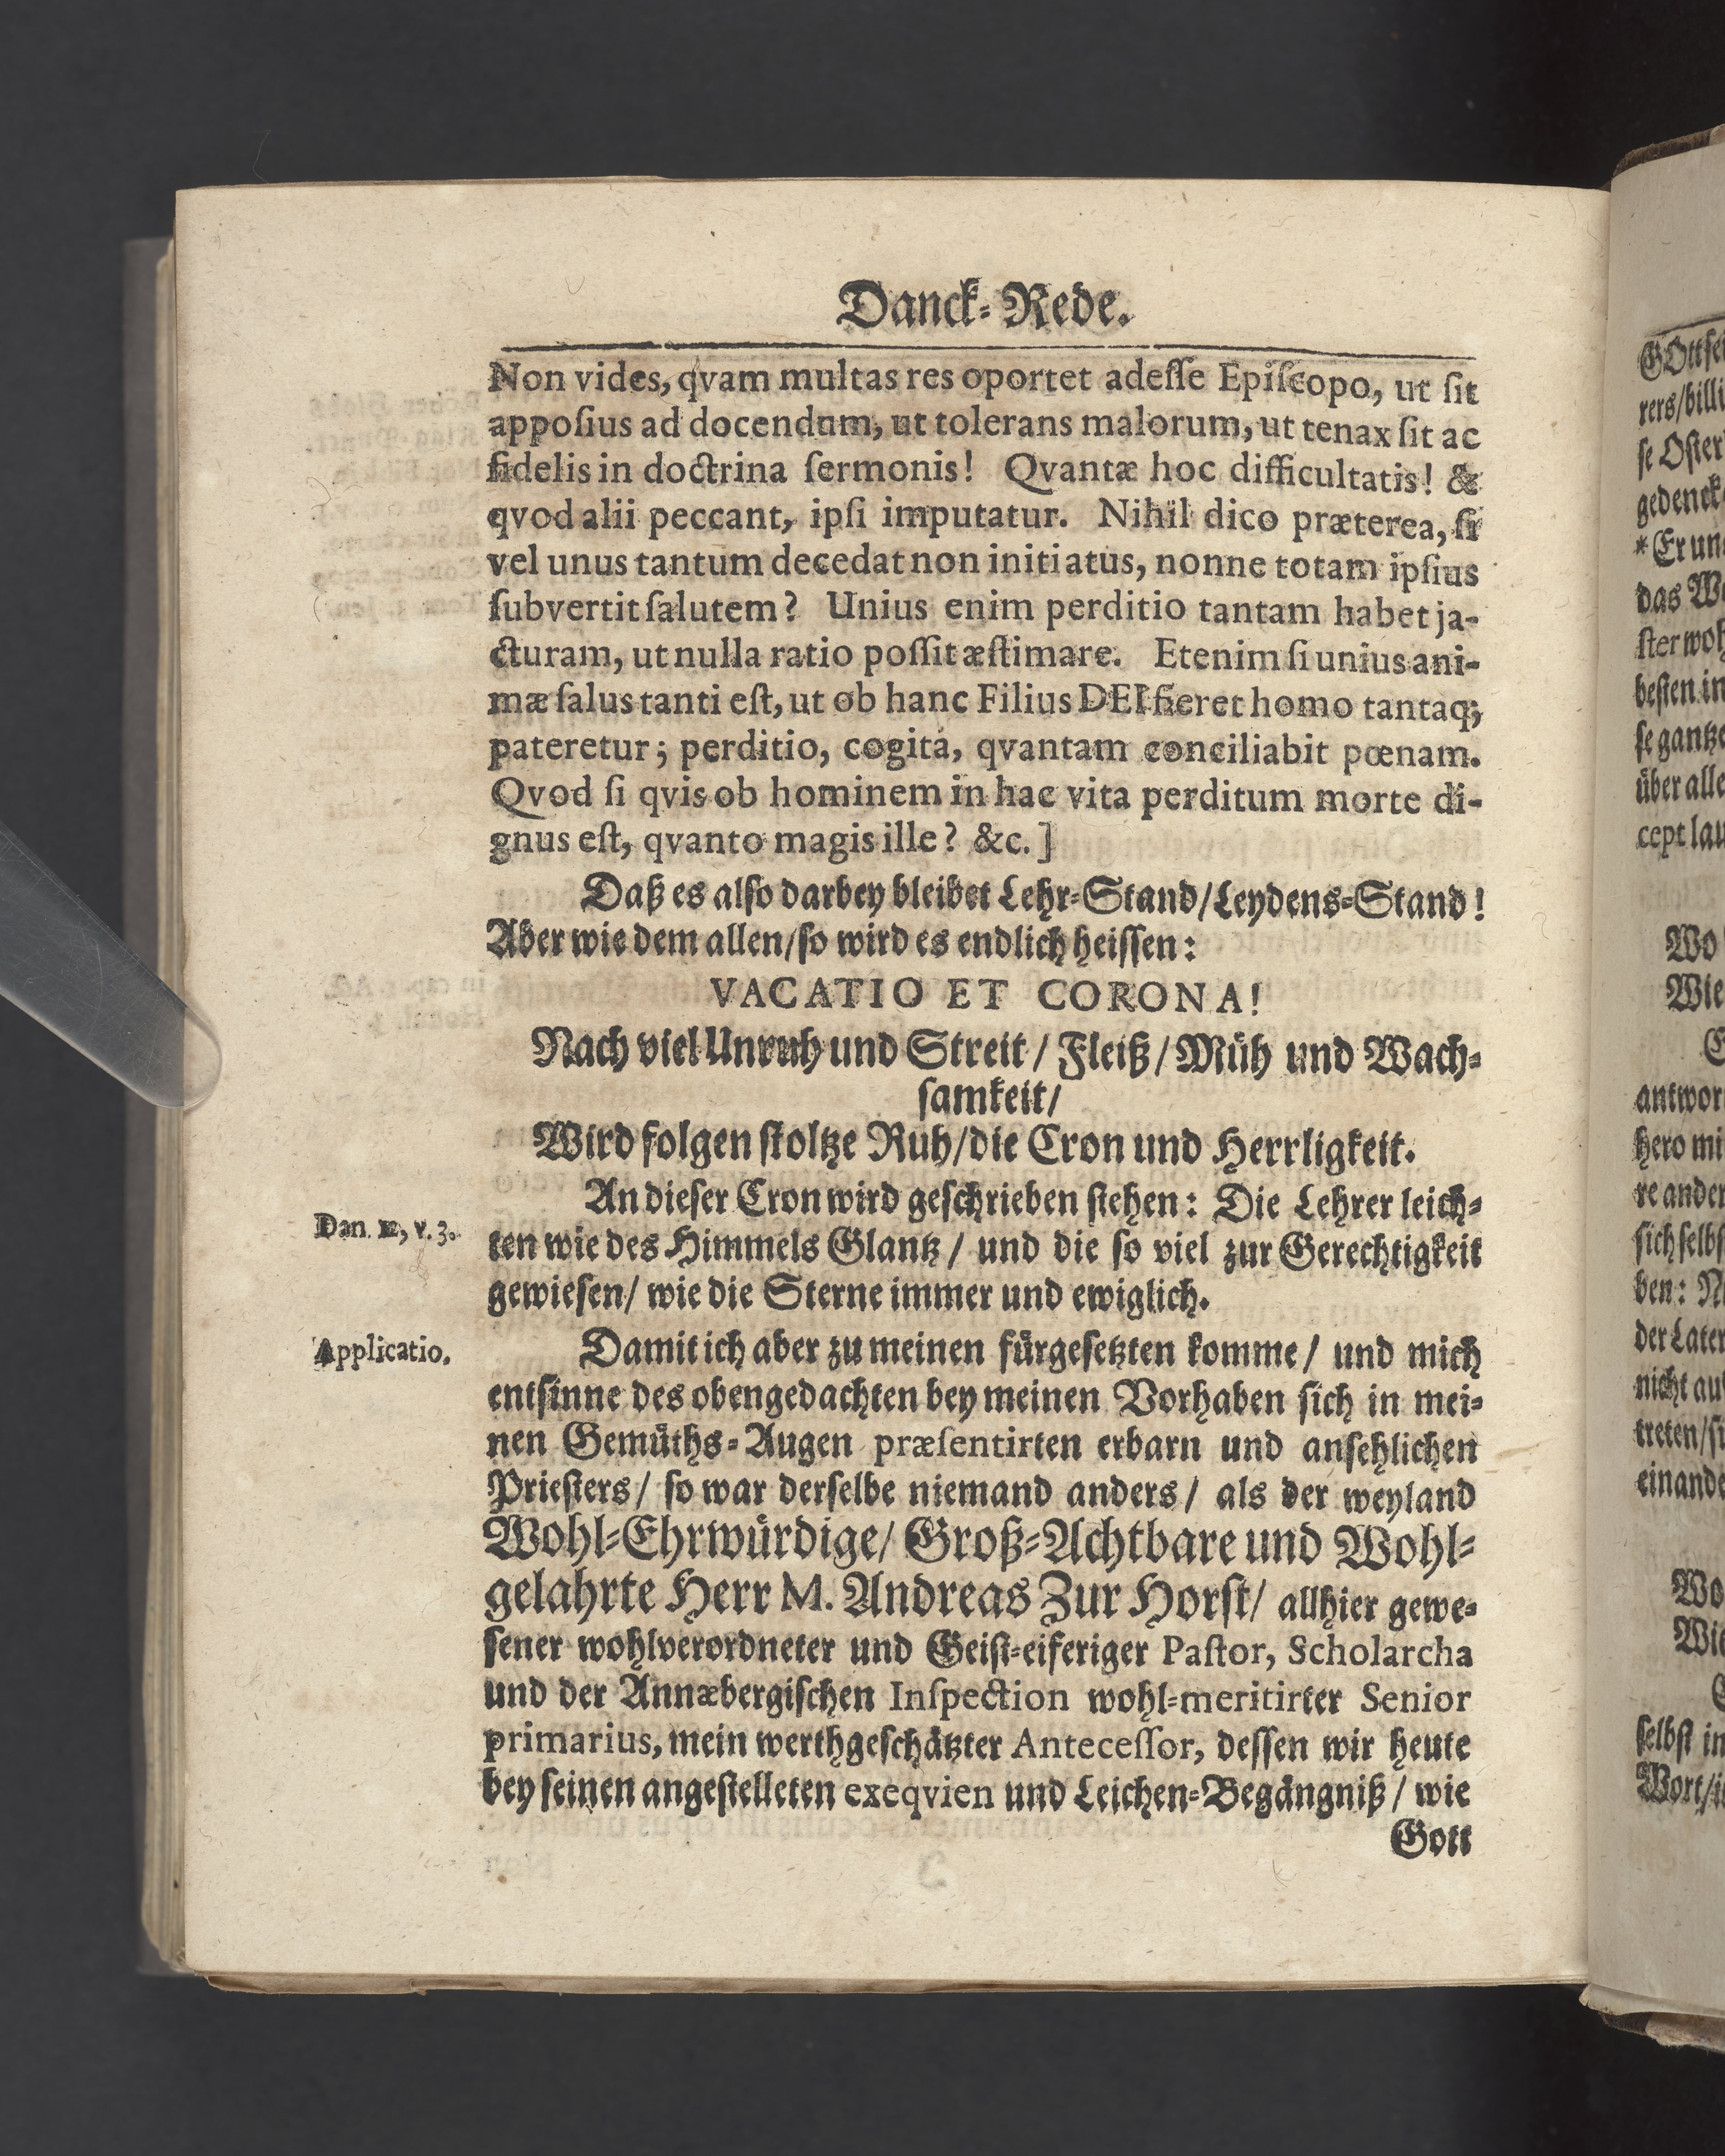 Danck-Rede.
Non vides, qvam multas res oportet adesse Episcopo, ut sit
apposius ad docendum, ut tolerans malorum, ut tenax sit ac
fidelis in doctrina sermonis! Qvantæ hoc difficultatis! &
qvod alii peccant, ipsi imputatur. Nihil dico præterea, si
vel unus tantum decedat non initiatus, nonne totam ipsius
subvertit salutem? Unius enim perditio tantam habet ja-
cturam, ut nulla ratio possit æstimare. Etenim si unius ani-
mæ salus tanti est, ut ob hanc Filius DEI fieret homo tantaq;
pateretur; perditio, cogitá, qvantam conciliabit pœnam.
Qvod si qvis ob hominem in hac vita perditum morte di-
gnus est, qvanto magis ille? &c.]
Daß es also darbey bleibet Lehr-Stand/Leydens-Stand!
Aber wie dem allen/so wird es endlich heissen:
VACATIO ET CORONA!
Nach viel Unruh und Streit/ Fleiß/ Müh und Wach-
samkeit/
Wird folgen stoltze Ruh/die Cron und Herrligkeit.
An dieser Cron wird geschrieben stehen: Die Lehrer leich-
Dan. v. 3.
ten wie des Himmels Glantz/ und die so viel zur Gerechtigkeit
gewiesen/ wie die Sterne immer und ewiglich.
Applicatio.
Damit ich aber zu meinen fürgesetzten komme/ und mich
entsinne des obengedachten bey meinen Vorhaben sich in mei-
nen Gemüths-Augen præsentirten erbarn und ansehlichen
Priesters/ so war derselbe niemand anders/ als der weyland
Wohl-Ehrwürdige/ Groß-Achtbare und Wohl-
gelahrte Herr M. Andreas Zur Horst/ allhier gewe-
sener wohlverordneter und Geist-eiferiger Pastor, Scholarcha
und der Annæbergischen Inspection wohl-meritirter Senior
primarius, mein werthgeschätzter Antecessor, dessen wir heute
bey seinen angestelleten exeqvien und Leichen-Begängniß/ wie
Gott